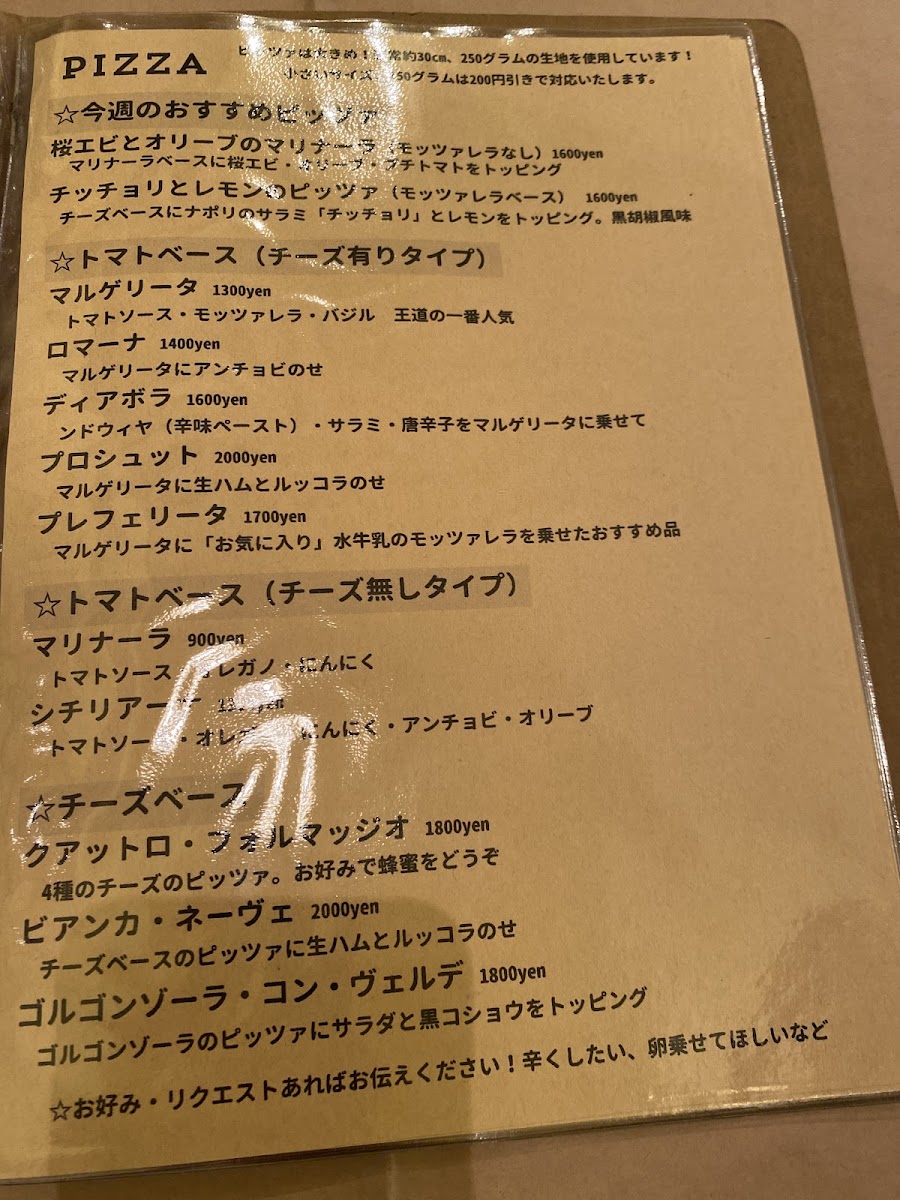 PIZZA
ピッツァは大きめ！通常約30cm、250グラムの生地を使用しています！
小さいサイズ 150グラムは200円引きで対応いたします。
☆今週のおすすめピッツァ
桜エビとオリーブのマリナーラ（モッツァレラなし）1600yen
マリナーラベースに桜エビ・オリーブ・プチトマトをトッピング
チッチョリとレモンのピッツァ（モッツァレラベース） 1600yen
チーズベースにナポリのサラミ「チッチョリ」とレモンをトッピング。黒胡椒風味
☆トマトベース（チーズ有りタイプ）
マルゲリータ 1300yen
トマトソース・モッツァレラ・バジル 王道の一番人気
ロマーナ 1400yen
マルゲリータにアンチョビのせ
ディアボラ 1600yen
ンドウィヤ（辛味ペースト）・サラミ・唐辛子をマルゲリータに乗せて
プロシュット 2000yen
マルゲリータに生ハムとルッコラのせ
プレフェリータ 1700yen
マルゲリータに「お気に入り」水牛乳のモッツァレラを乗せたおすすめ品
☆トマトベース（チーズ無しタイプ）
マリナーラ 900yen
トマトソース・オレガノ・にんにく
シチリアーナ
トマトソース・オレガノ・にんにく・アンチョビ・オリーブ
☆チーズベース
クアットロ・フォルマッジオ 1800yen
4種のチーズのピッツァ。お好みで蜂蜜をどうぞ
ビアンカ・ネーヴェ 2000yen
チーズベースのピッツァに生ハムとルッコラのせ
ゴルゴンゾーラ・コン・ヴェルデ 1800yen
ゴルゴンゾーラのピッツァにサラダと黒コショウをトッピング
☆お好み・リクエストあればお伝えください！辛くしたい、卵乗せてほしいなど